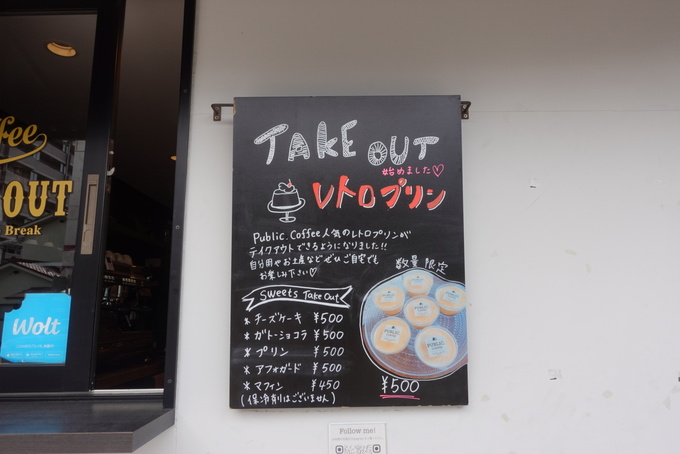 ffee
OUT
Break
Wolt
TAKE OUT
始めました♡
レトロプリン
Public. Coffee人気のレトロプリンが
テイクアウトできるようになりました!!
自分用やお土産などぜひご自宅でも
お楽しみ下さい♡
数量限定
Sweets Take Out
* チーズケーキ ¥500
* ガトーショコラ ¥500
* プリン ¥500
* アフォガード ¥500
* マフィン ¥450
(保冷剤はございません)
PUBLIC
¥500
Follow me!